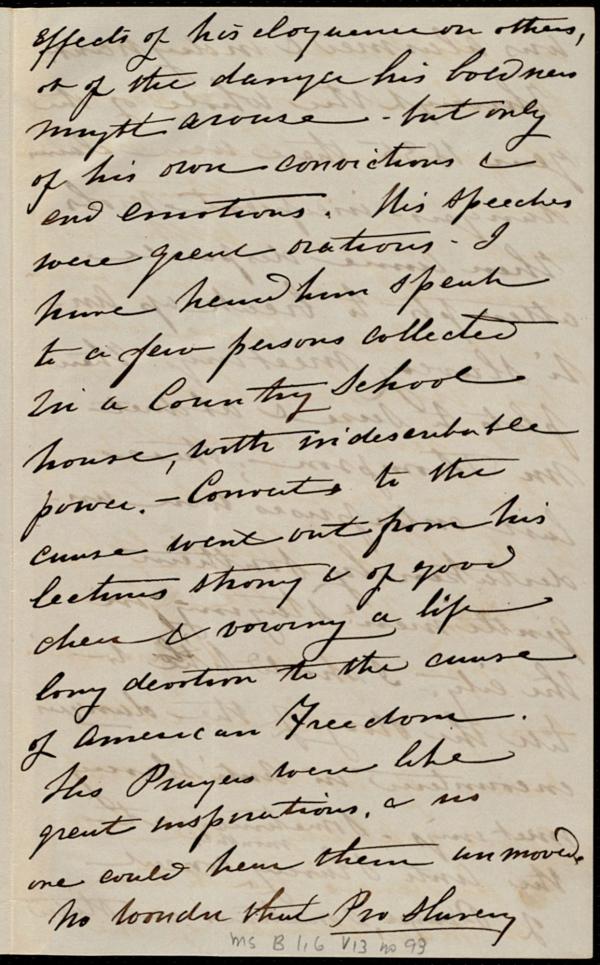 effects of his eloquence on others,
or of the danger his boldness
might arouse - but only
of his own convictions &
and emotions. His speeches
were great orations - I
have heard him speak
to a few persons collected
in a Country School
house, with indescribable
power. - Converts to the
cause went out from his
lectures strong & of good
cheer & vowing a life
long devotion to the cause
of American Freedom.
His Prayers were like
great inspirations, & no
one could hear them unmoved.
No wonder that Pro Slavery
Ms B 1.6 V13 no 93